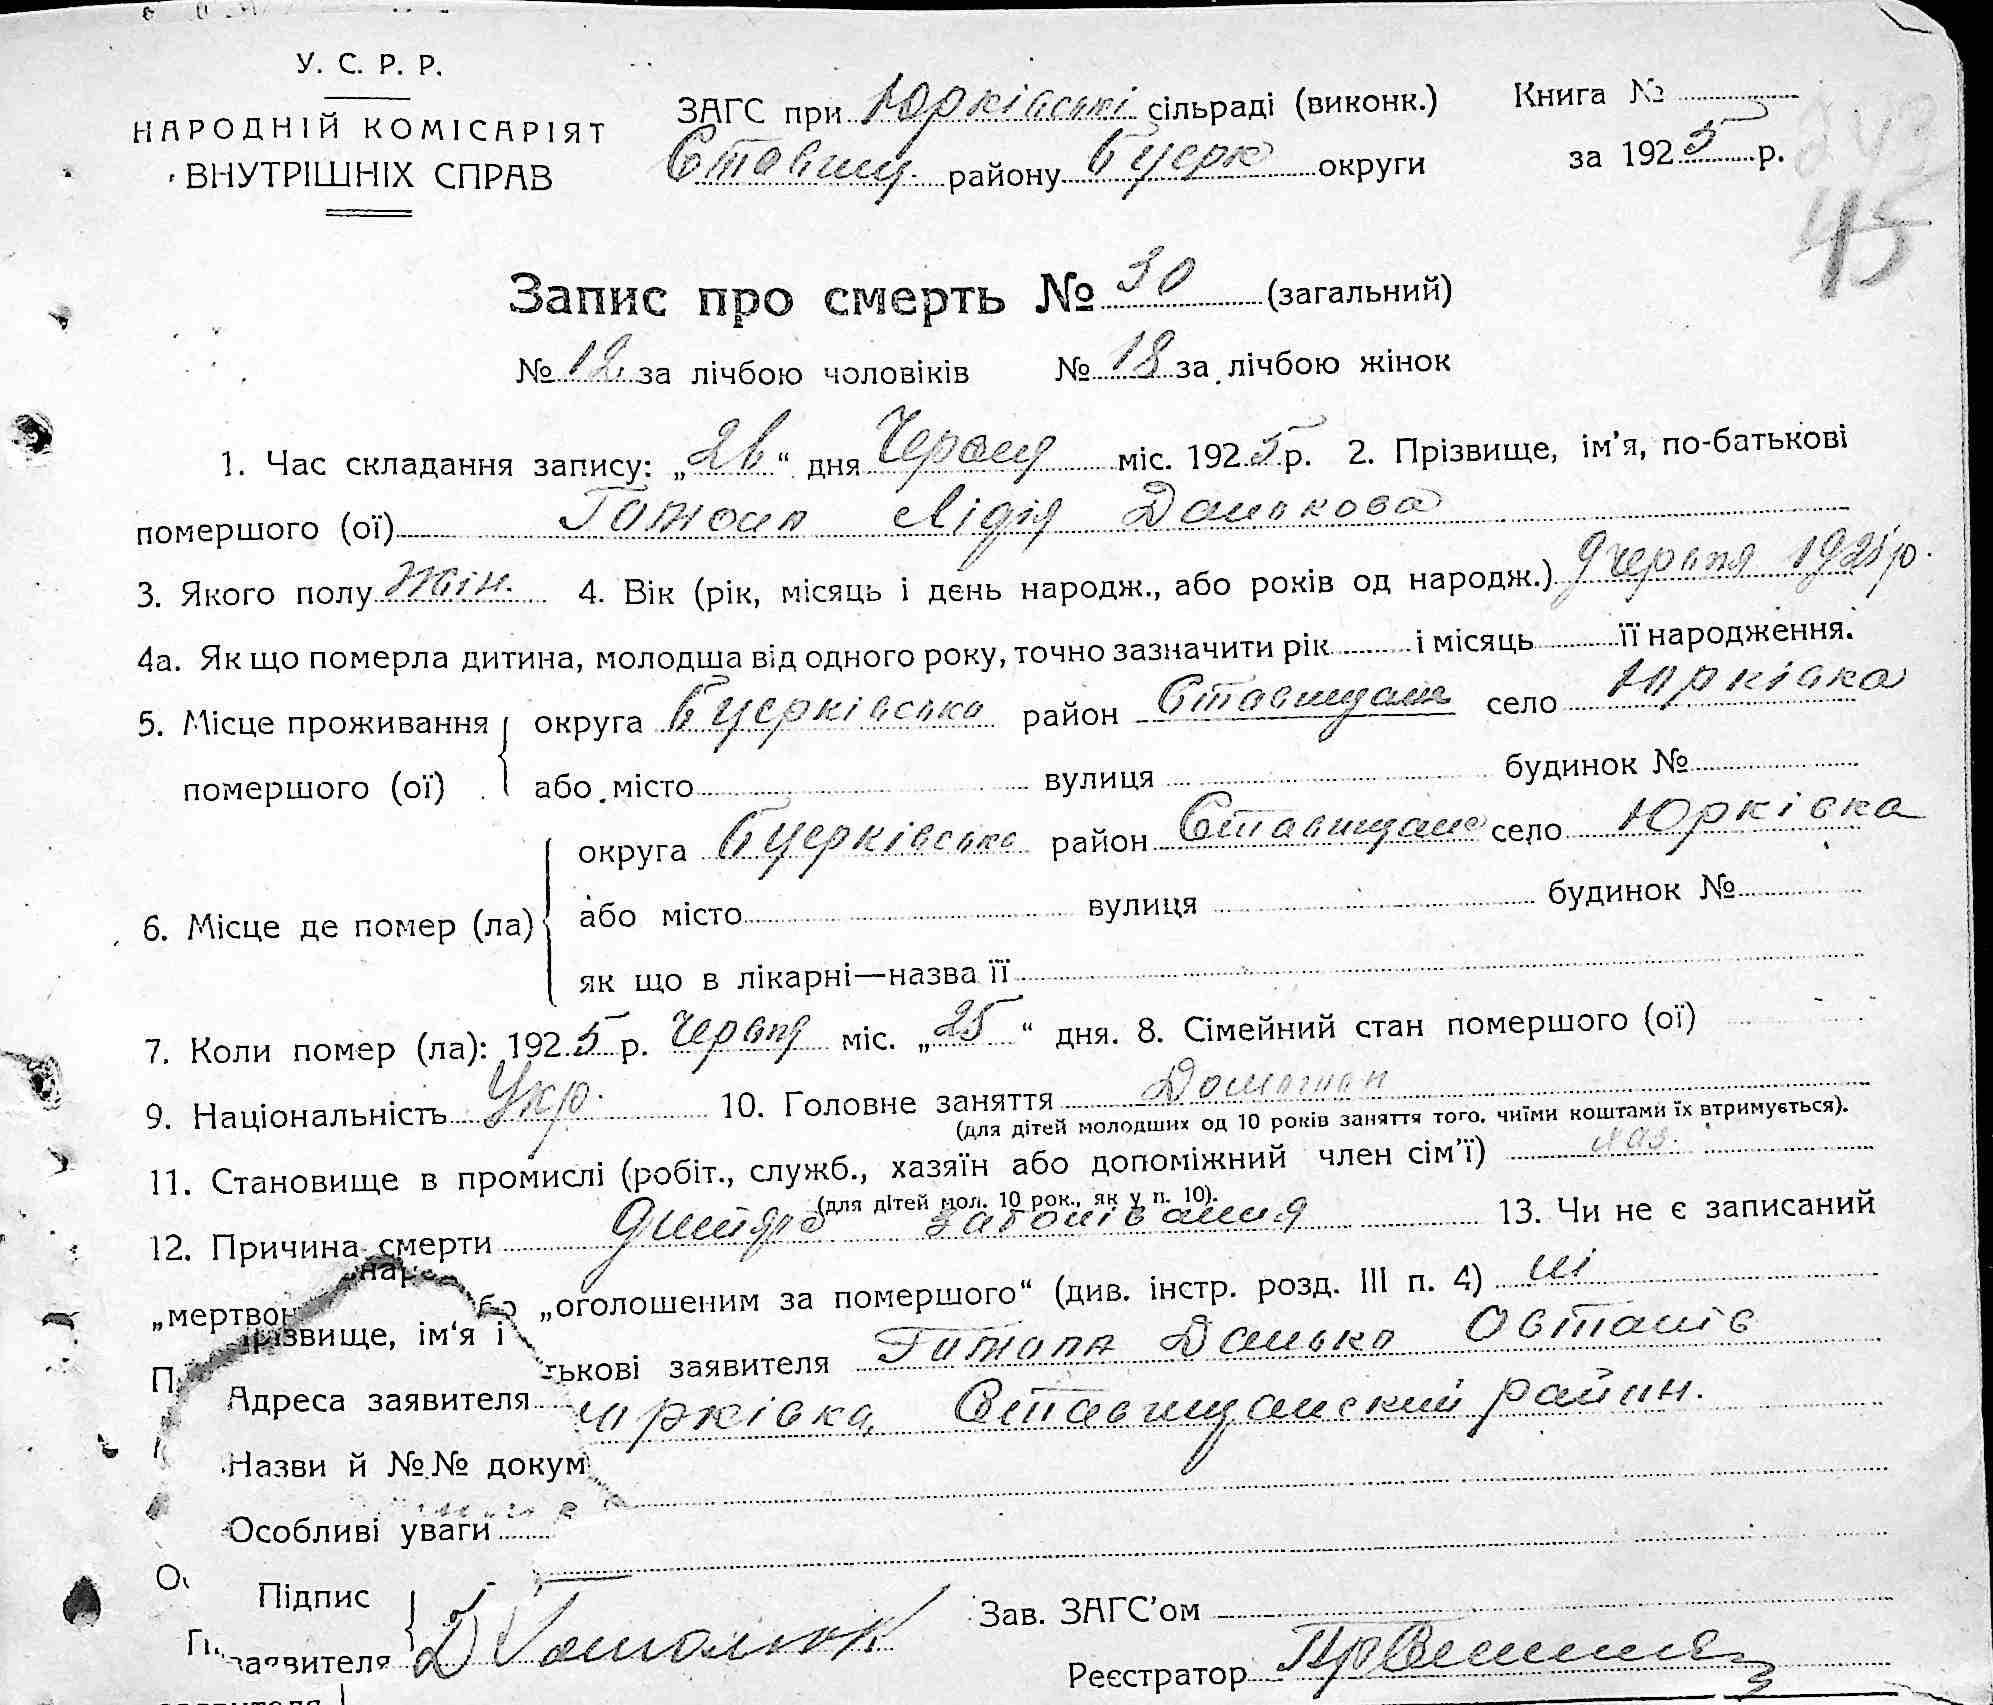 У. С. Р. Р.
НАРОДНІЙ КОМІСАРІЯТ
ВНУТРІШНІХ СПРАВ
ЗАГС при Юрківські сільраді (виконк.)
Ставищ. району Буерк округи
Книга №
за 1925 р.
45
Запис про смерть № 30 (загальний)
№ 12 за лічбою чоловіків № 18 за лічбою жінок
1. Час складання запису: „26“ дня Червня міс. 1925 р. 2. Прізвище, ім’я, по-батькові
помершого (ої) Лідія Данькова
3. Якого полу жін. 4. Вік (рік, місяць і день народж., або років од народж.) 9 червня 1925 р.
4а. Як що померла дитина, молодша від одного року, точно зазначити рік і місяць її народження.
5. Місце проживання округа Буерківська район Ставищан село Юрківка
помершого (ої) або місто вулиця будинок №
округа Буерківська район Ставищане село Юрківка
6. Місце де помер (ла) або місто вулиця будинок №
як що в лікарні—назва її
7. Коли помер (ла): 1925 р. Червня міс. „25“ дня. 8. Сімейний стан помершого (ої)
9. Національність Укр. 10. Головне заняття
(для дітей молодших од 10 років заняття того, чиїми коштами їх втримується).
11. Становище в промислі (робіт., служб., хазяїн або допоміжний член сім’ї)
(для дітей мол. 10 рок., як у п. 10).
12. Причина смерти 13. Чи не є записаний
„мертвон „оголошеним за помершого“ (див. інстр. розд. III п. 4) ні
Прізвище, ім‘я і тькові заявителя Данько
Адреса заявителя Юрківка, Ставищанский район.
Назви й №№ докум
Особливі уваги
Підпис
заявителя
Зав. ЗАГС’ом
Реєстратор